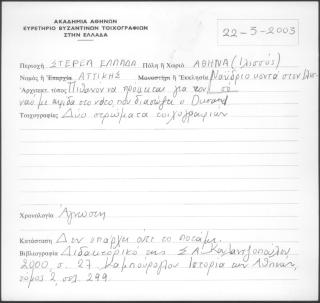 ΑΚΑΔΗΜΙΑ ΑΘΗΝΩΝ
ΕΥΡΕΤΗΡΙΟ ΒΥΖΑΝΤΙΝΩΝ ΤΟΙΧΟΓΡΑΦΙΩΝ
ΣΤΗΝ ΕΛΛΑΔΑ
22-5-2003
Περιοχή ΣΤΕΡΕΑ ΕΛΛΑΔΑ Πόλη ή Χωριό ΑΘΗΝΑ (Ιλισσός)
Νομός ή Επαρχία ΑΤΤΙΚΗΣ Μοναστήρι ή Εκκλησία κοντά στον
Αρχιτεκτ. τύπος Πιθανόν να πρόκειται για το
ναό με στο νότο που διασώζει ο Durand
Τοιχογραφίες Δύο στρώματα τοιχογραφιών
Χρονολογία Άγνωστη
Κατάσταση Δεν υπάρχει ούτε το ποτάμι.
Βιβλιογραφία Διδακτορικό της Σ. Α.
2000, σ. 27. Καμπούρογλου Ιστορία των Αθηνών,
τόμος 2, σελ. 299.